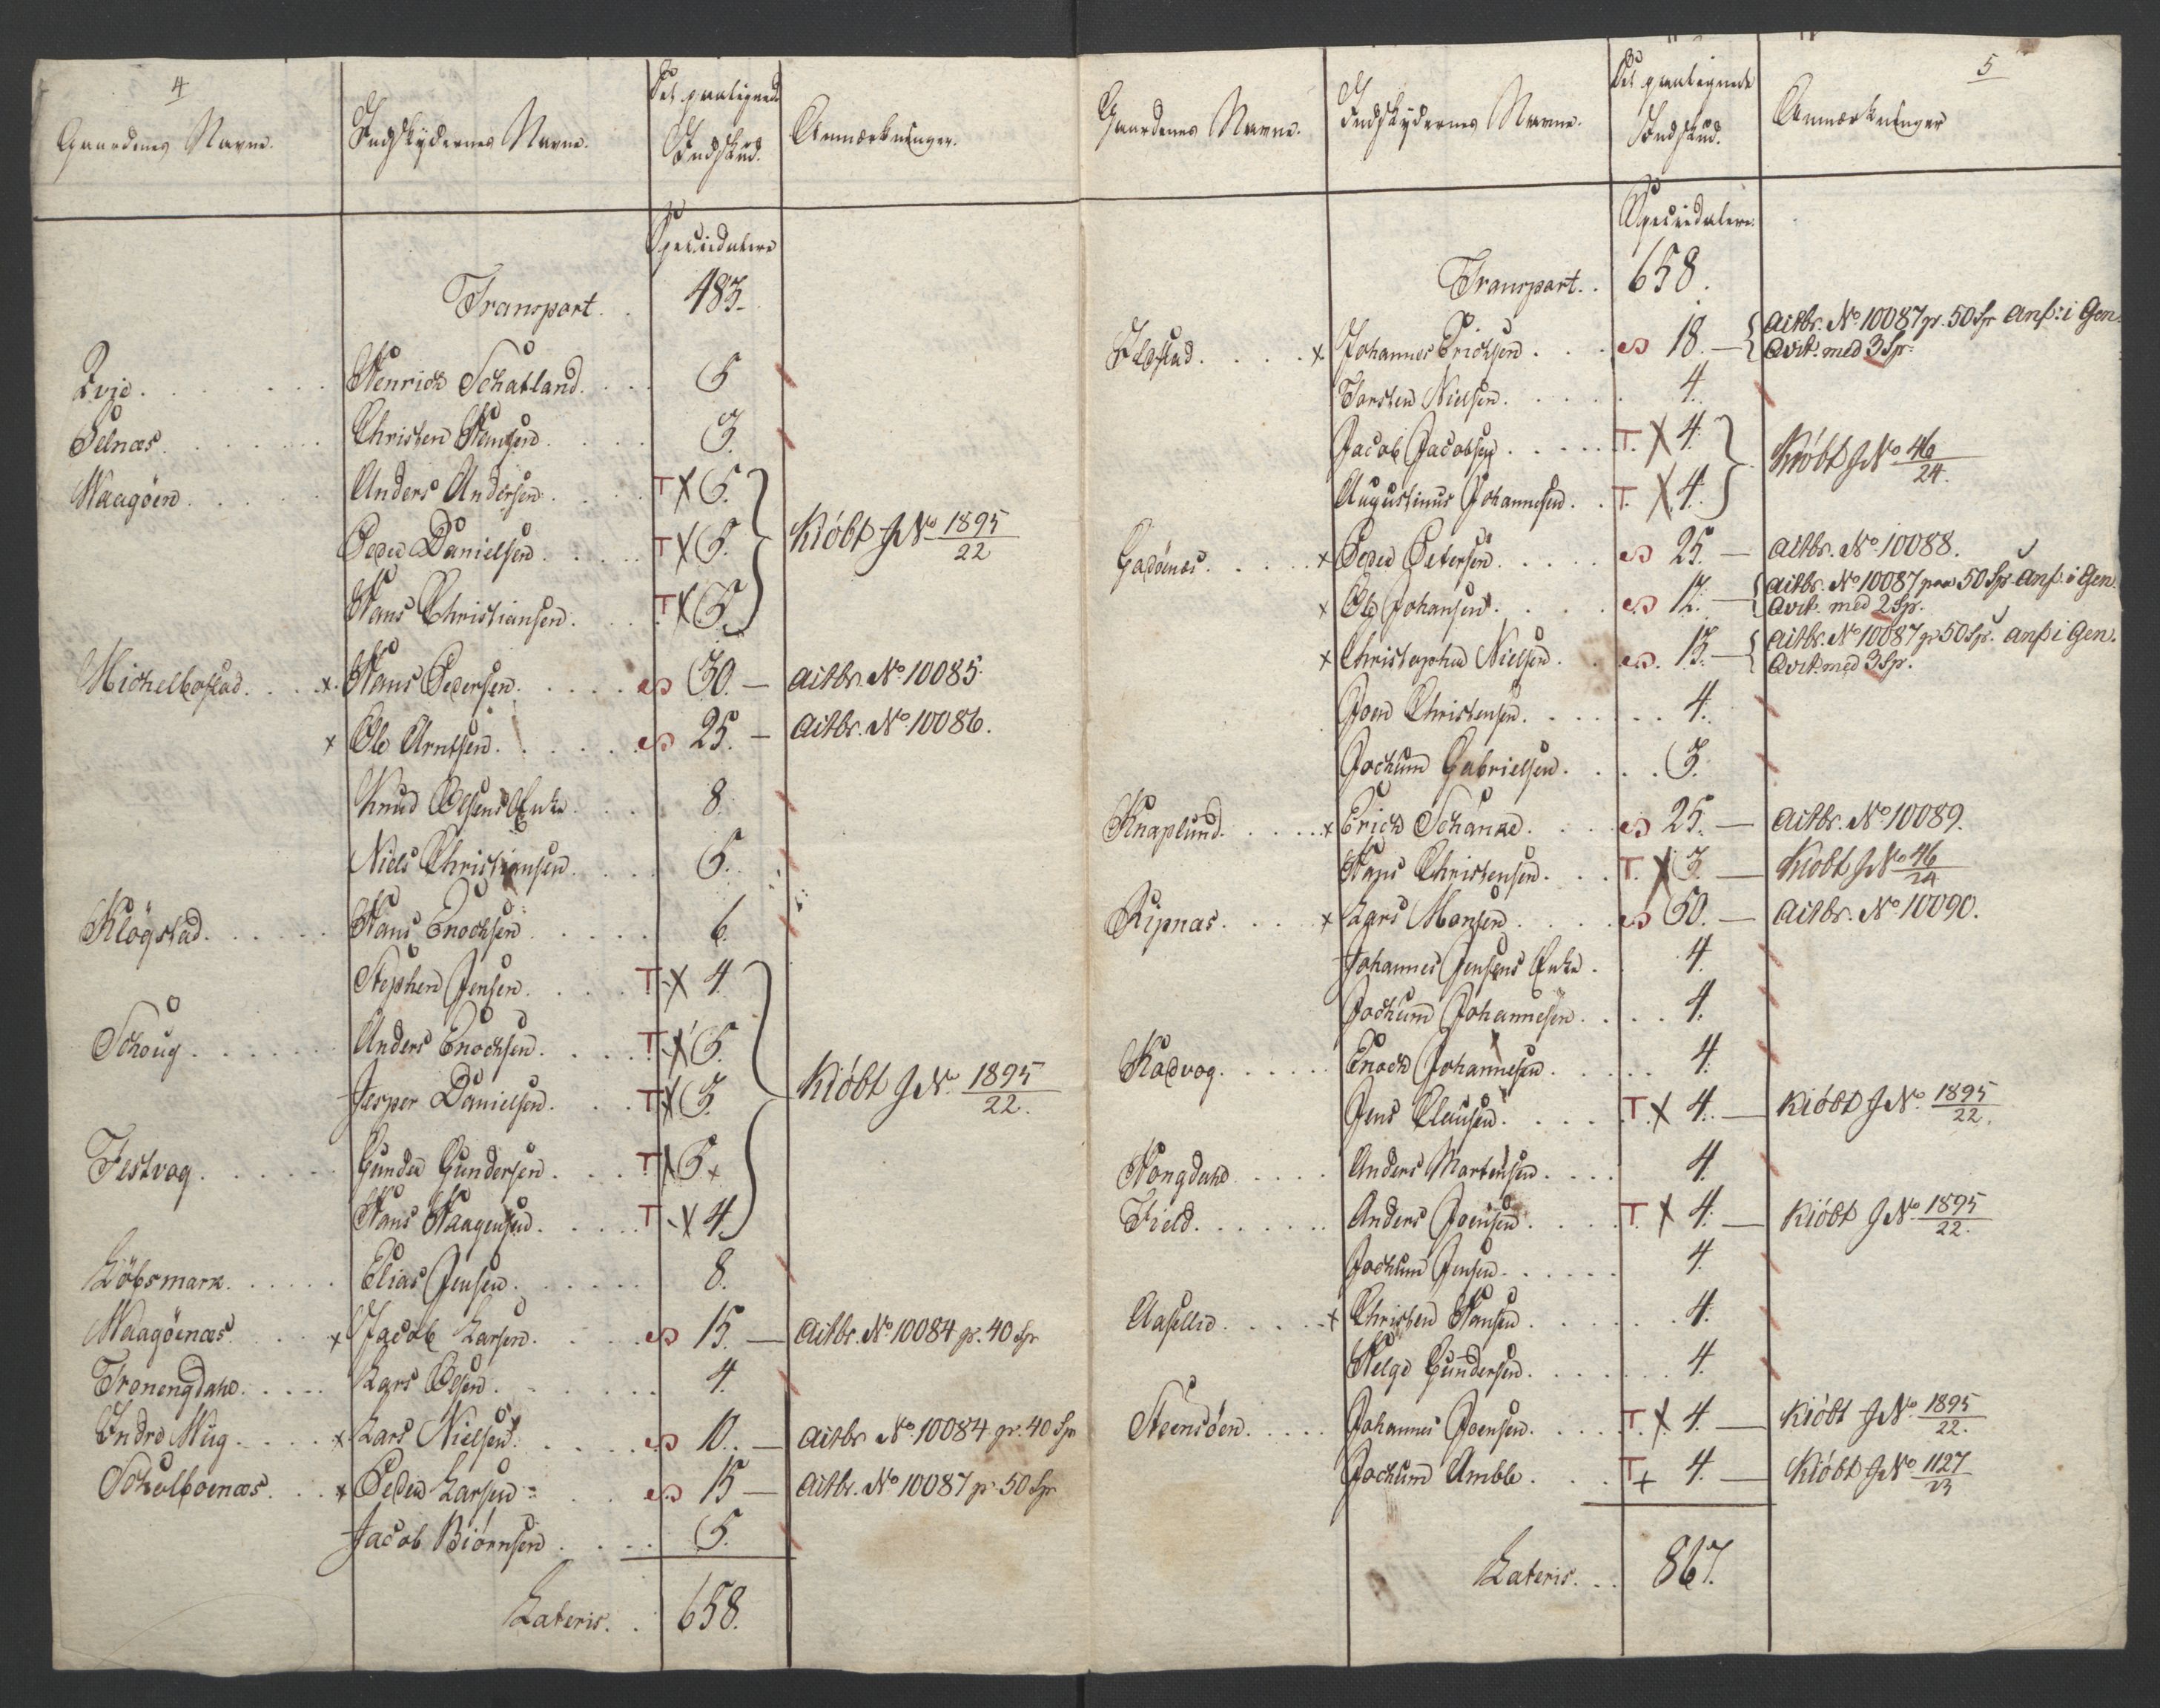 4
Gaardenes Navne. Indskydernes Navne. Det paalignede Indskud. Anmærkninger.
Speciedalere
Transport. . 483.
Evie. . . . Henrich Schatland. . . . 5
Selnæs. . . . Christen Hansen. . . . 3.
Waagöen. . . . Anders Andersen. . . . T X 5.
Peder Danielsen. . . . T X 5. Kiöbt J No 1895/22
Hans Christiansen. . . . T X 5.
Michelbostad. . . x Hans Pedersen. . . . 30. — Actbr. No 10085.
x Ole Arntsen. . . . 25. — Actbr. No 10086.
Knud Olsens Enke. . . . 8.
Niels Christiansen. . . . 5.
Klögstad. . . . Hans Enochsen. . . . 6.
Stephen Jensen. . . . T X 4.
Schoug. . . . Anders Enochsen. . . . T X 5.
Jesper Danielsen. . . . T X 3. Kiöbt J No 1895/22.
Festvog. . . . Gunder Gundersen. . . . T X 5 x
Hans Haagensen. . . . T X 4.
Löbsmark. . . . Elias Jensen. . . . 8.
Waagöenæs. . . x Jacob Larsen. . . . 15. — Actbr. No 10084 pr. 40 Sp
Tronengdahl. . . . Lars Olsen. . . . 4.
Indre Wiig. . . . x Lars Nielsen. . . . 10. — Actbr No 10084 pr. 40 Sp
Schelboenæs. . . x Peder Larsen. . . . 15 — Actbr. No 10087 pr 50 Sp
Jacob Biörnsen. . . . 5.
Lateris. . 658.
5
Gaardenes Navne. Indskydernes Navne. Det paalignede Indskud. Anmærkninger
Speciedalere.
Transport. . 658.
Ilstad. . . . x Johannes Erichsen. . . . 18. — Actbr. No 10087 pr. 50 Sp Anf: i Gen.
Qvit. med 3 Sp.
Torsten Nielsen. . . . 4.
Jacob Jacobsen. . . . T. X 4. Kiöbt J No 46/24.
Augustinus Johannesen. . T. X 4.
Godöenæs. . . . x Peder Petersen. . . . 25. — Actbr. No 10088.
x Ole Johansen. . . . 12. — Actbr. No 10087 paa 50 Sp Anf. i Gen.
Qvit. med 2 Sp.
x Christopher Nielsen. . . 13. — Actbr. No 10087 pr 50 Sp. Anf i Gen.
Qvit. med 3 Sp.
Joen Christensen. . . . 4.
Jochum Gabrielsen. . . . 3.
Knaplund. . . . x Erich Schanke. . . . 25. — Actbr. No 10089.
Hans Christensen. . . T. X 3. — Kiöbt J No 46/24
Ripnæs. . . . x Lars Monsen. . . . 50. — Actbr. No 10090.
Johannes Jensens Enke. . 4.
Jochum Johannesen. . . . 4.
Kodvog. . . . Enoch Johannesen. . . . 4.
Jens Clausen. . . . T. X 4. — Kiöbt J No. 1895/22.
Hongdahl. . . . Anders Mortensen. . . . 4.
Field. . . . Anders Joensen. . . . T. X 4. — Kiöbt J No. 1895/22.
Jochum Jensen. . . . 4.
Aasellie. . . . x Christen Hansen. . . . 4.
Helge Gundersen. . . . 4.
Steensöen. . . . Johannes Joensen. . . . T. X. 4. — Kiöbt J No. 1895/22.
Jochum Umble. . . . T + 4. — Kiöbt J No 1127/23
Lateris. . . 867.